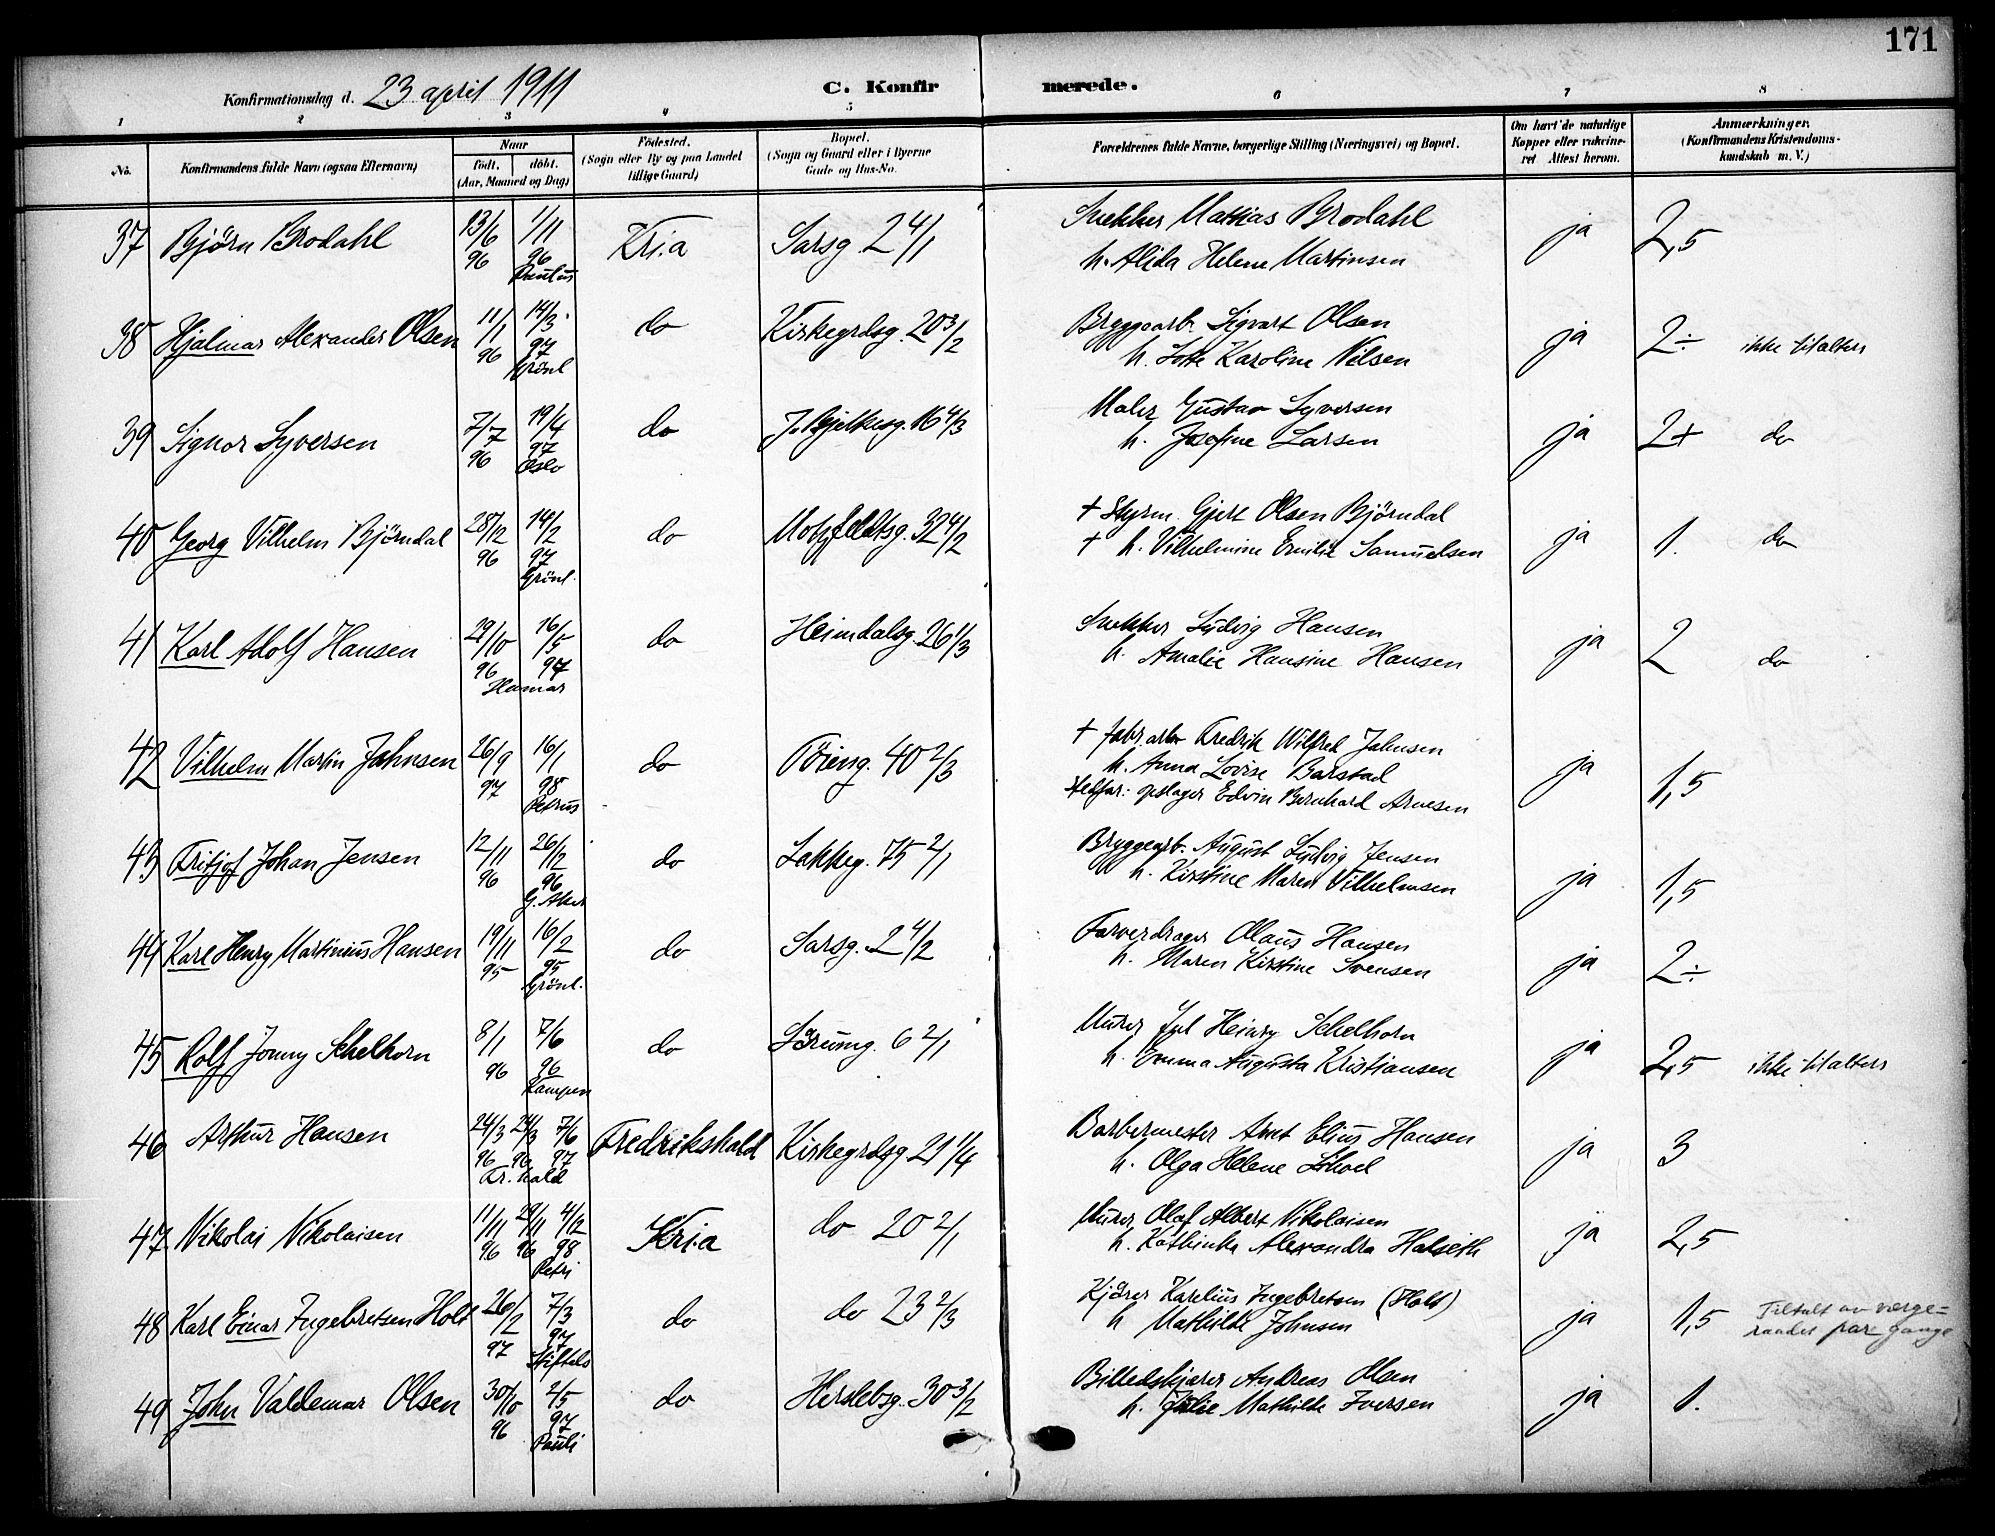 171
Konfirmationsdag d. 23 april 1911
C. Konfirmerede.
1 2 3 4 5 6 7 8
No.
Konfirmandens fulde Navn (ogsaa Efternavn)
Naar
født. døbt.
(Aar, Maaned og Dag)
Fødested.
(Sogn eller By og paa Landet
tillige Gaard)
Bopæl.
(Sogn og Gaard eller i Byerne
Gade og Hus-No.
Forældrenes fulde Navne, borgerlige Stilling (Næringsvei) og Bopæl.
Om havt de naturlige
Kopper eller vakcine-
ret Attest herom.
Anmærkninger.
(Konfirmandens Kristendoms-
kundskab m. V.)
37 Bjørn Brodahl 13/6 96 1/11 96 Paulus Kria Sarsg. 2 4/1
Snekker Mathias Brodahl
h. Alida Helene Martinsen
ja 2,5
38 Hjalmar Alexander Olsen 11/1 96 14/3 97 Grønl. do Kirkegrdsg. 20 3/2
Bryggearb. Sigvart Olsen
h. Lotte Karoline Nilsen
ja 2÷ ikke tiltalters
39 Signor Syversen 7/7 96 19/4 97 Oslo do J. Bjelkesg. 16 4/3
Maler Gustav Syversen
h. Josefine Larsen
ja 2+ do
40 Georg Vilhelm Bjørndal 28/12 96 14/2 97 Grønl. do Motzfeldtsg. 32 4/2
+ Styrm. Gjert Olsen Bjørndal
+ h. Vilhelmine Emilie Samuelsen
ja 1. do
41 Karl Adolf Hansen 29/10 96 16/5 97 Hamar do Heimdalsg. 26 1/3
Snekker Ludvig Hansen
h. Amalie Hansine Hansen
ja 2 do
42 Vilhelm Martin Jahnsen 26/9 97 16/1 98 Petrus do Tøieng. 40 2/3
+ fabr.arb. Fredrik Wilfred Jahnsen
h. Anna Lovise Barstad
stedfar: Edvin Bernhard Arnesen
ja 1,5
43 Fritjof Johan Jensen 12/11 96 26/12 96 G. Aker do Lakkeg. 75 2/1
Bryggearb. August Ludvig Jensen
h. Kirstine Maren Vilhelmsen
ja 1,5
44 Karl Henry Martinius Hansen 19/11 95 16/2 95 Grønl. do Sarsg. 2 4/2
Farverdrager Olaus Hansen
h. Maren Kirstine Svensen
ja 2÷
45 Rolf Jonny Schelhorn 8/1 96 7/6 96 Kampen do Sørumg. 6 2/1
Murer Jul Heinry Schelhorn
h. Emma Augusta Kristiansen
ja 2,5 ikke tiltalters
46 Arthur Hansen 24/3 96 24/3 96 7/6 97 Fr.hald Fredrikshald Kirkegrdsg. 21 1/4
Barbermester Arnt Elius Hansen
h. Olga Helene
ja 3
47 Nikolai Nikolaisen 11/11 96 29/11 96 4/12 98 Petri Kria do 20 2/1
Murer Olaf Albert Nikolaisen
h. Kathinka Alexandra Halseth
ja 2,5
48 Karl Einar Ingebretsen Holt 26/2 97 7/3 97 Stiftels do do 23 2/3
Kjører Karelius Ingebretsen (Holt)
h Mathilde Johnsen
ja 1,5 Tiltalt av værge-
raadet par gange
49 John Valdemar Olsen 30/10 96 2/5 97 Pauli do Herslebsg. 30 3/2
Billedskjærer Andreas Olsen
h. Julie Mathilde Iversen
ja 1.